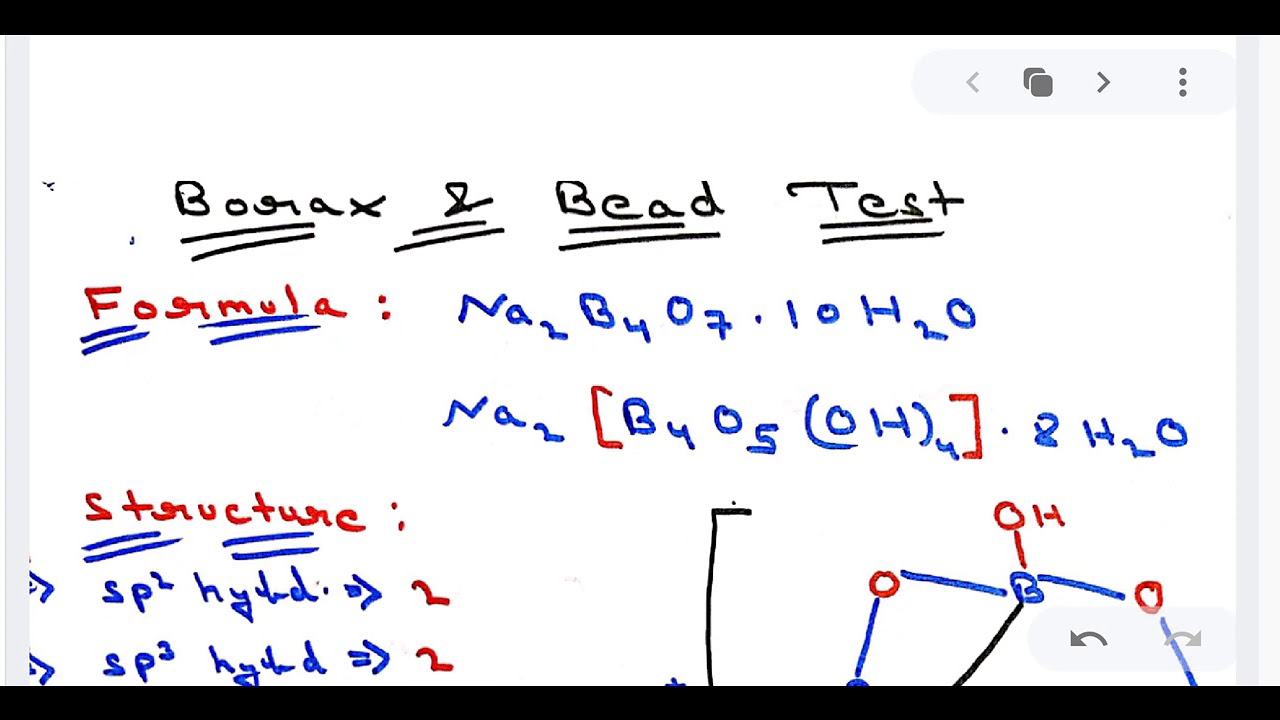 Borax & Bead Test
Formula : Na₂B₄O₇.10H₂O
Na₂[B₄O₅(OH)₄].8H₂O
Structure :
OH
=> sp² hybd. => 2
O B O
=> sp³ hybd => 2